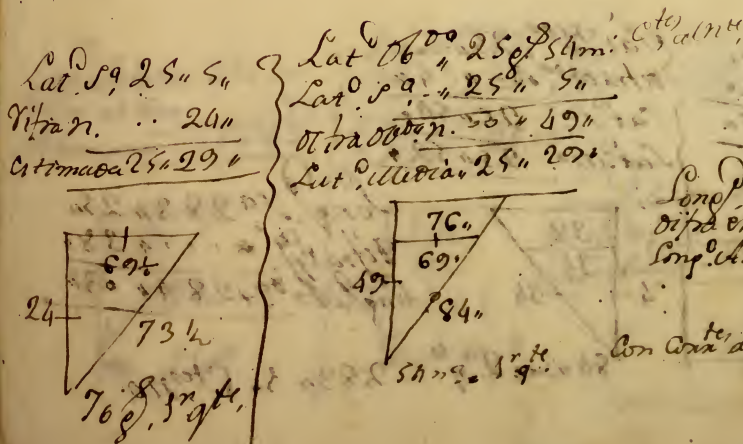 Lat.d s.a 25,, 5,,
Difra n. .. 24,,
estimada 25,, 29,,
69½
24
73½
76 g.s 1r qte.
Lat.d Obda ,, 25 gs 54 m.
Lat.d s.a ,, 25 ,, 5,,
Difra obda n. ,, 49,,
Lat.d Media ,, 25,, 29.
76,,
69.
49
84,,
1r qte.
Long.d
difra en
Long.d
Con Corrtes